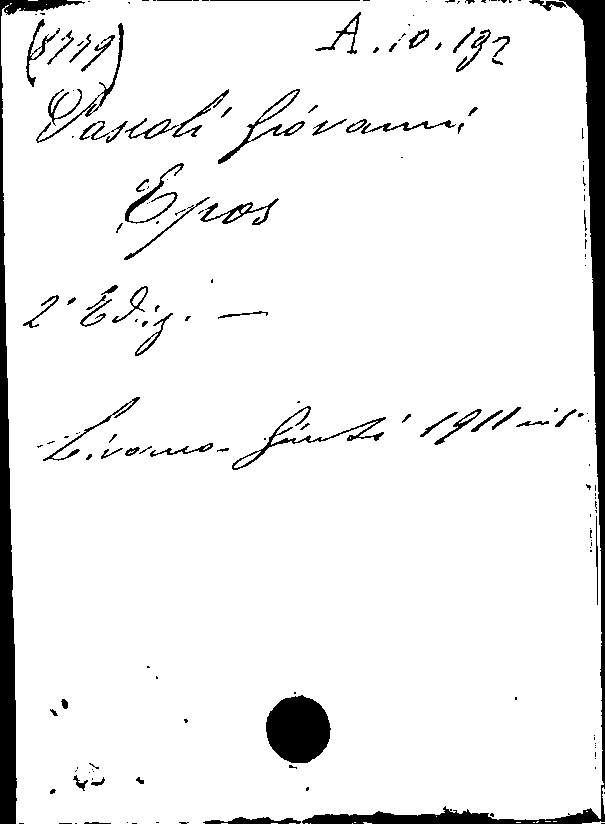 (8779) A.10.192
Pascoli Giovanni
Epos
2° Ediz. —
Livorno - Giusti 1911 in 8°